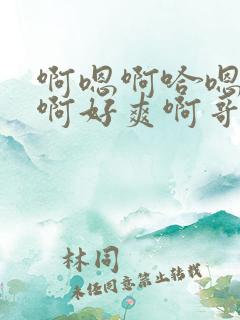 啊嗯啊哈嗯
啊好爽啊哥
林同
未经同意禁止转载